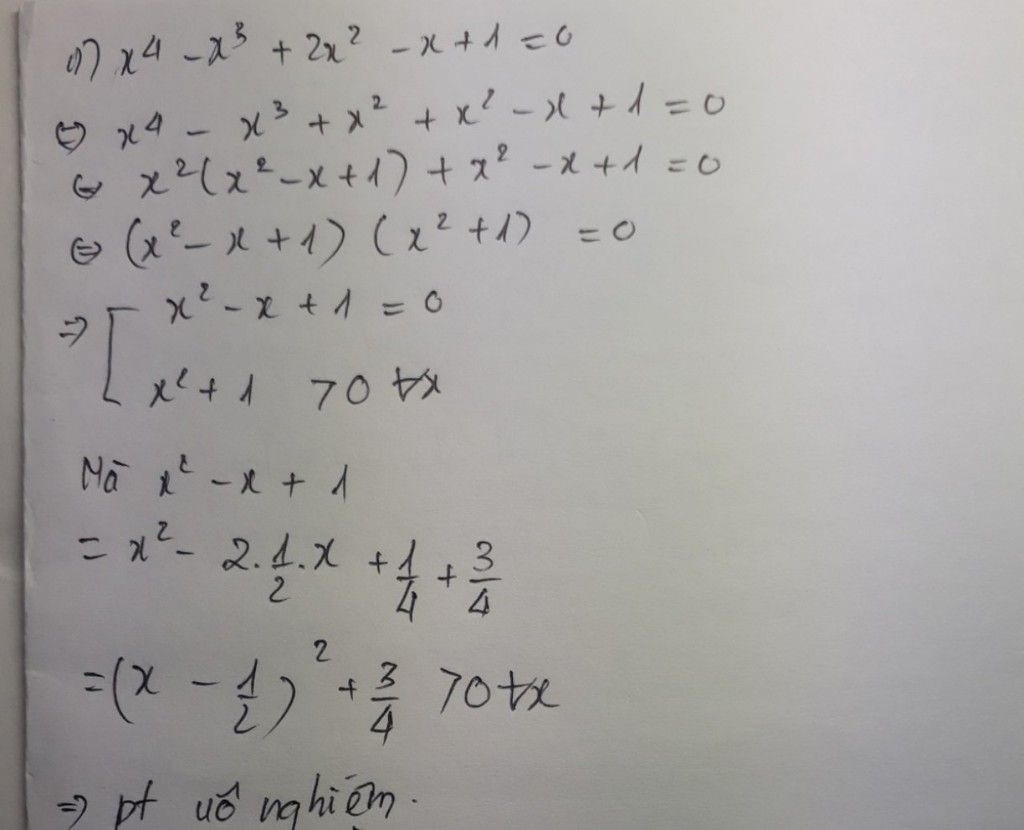 a) x⁴ - x³ + 2x² - x + 1 = 0
⇔ x⁴ - x³ + x² + x² - x + 1 = 0
⇔ x²(x² - x + 1) + x² - x + 1 = 0
⇔ (x² - x + 1) (x² + 1) = 0
⇒ [ x² - x + 1 = 0
x² + 1 > 0 ∀x
Mà x² - x + 1
= x² - 2.1/2.x + 1/4 + 3/4
= (x - 1/2)² + 3/4 > 0 ∀x
⇒ pt vô nghiệm.